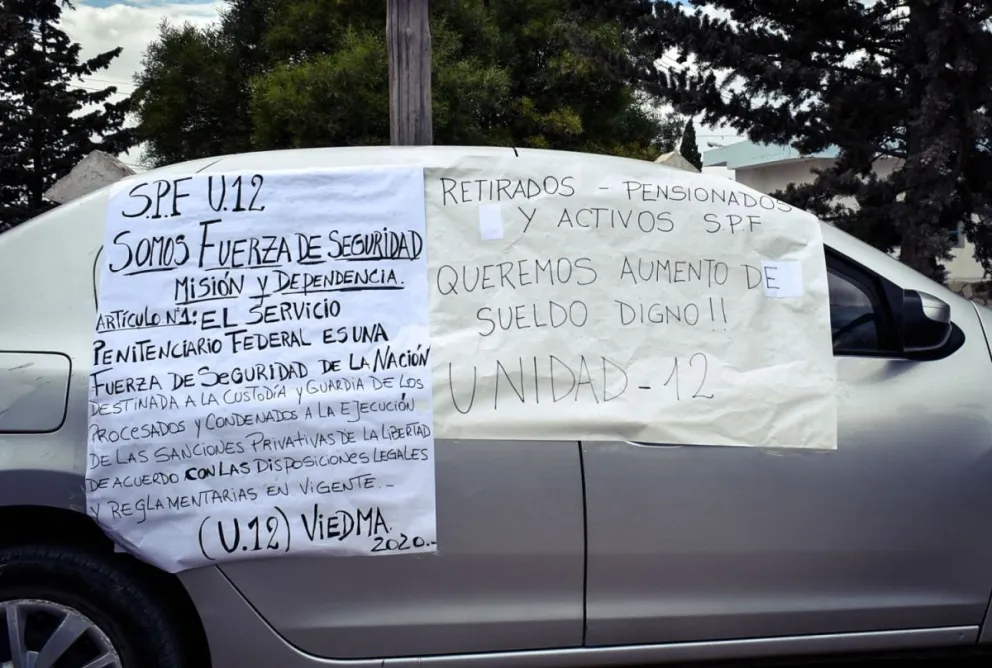 S.P.F U.12
SOMOS FUERZA DE SEGURIDAD
MISIÓN Y DEPENDENCIA.
ARTÍCULO Nº1: EL SERVICIO
PENITENCIARIO FEDERAL ES UNA
FUERZA DE SEGURIDAD DE LA NACIÓN
DESTINADA A LA CUSTODÍA Y GUARDIA DE LOS
PROCESADOS Y CONDENADOS A LA EJECUCIÓN
DE LAS SANCIONES PRIVATIVAS DE LA LIBERTAD
DE ACUERDO CON LAS DISPOSICIONES LEGALES
Y REGLAMENTARIAS EN VIGENTE.-
(U.12) VIEDMA.
2020.-
RETIRADOS - PENSIONADOS
Y ACTIVOS S.P.F
QUEREMOS AUMENTO DE
SUELDO DIGNO!!
UNIDAD-12